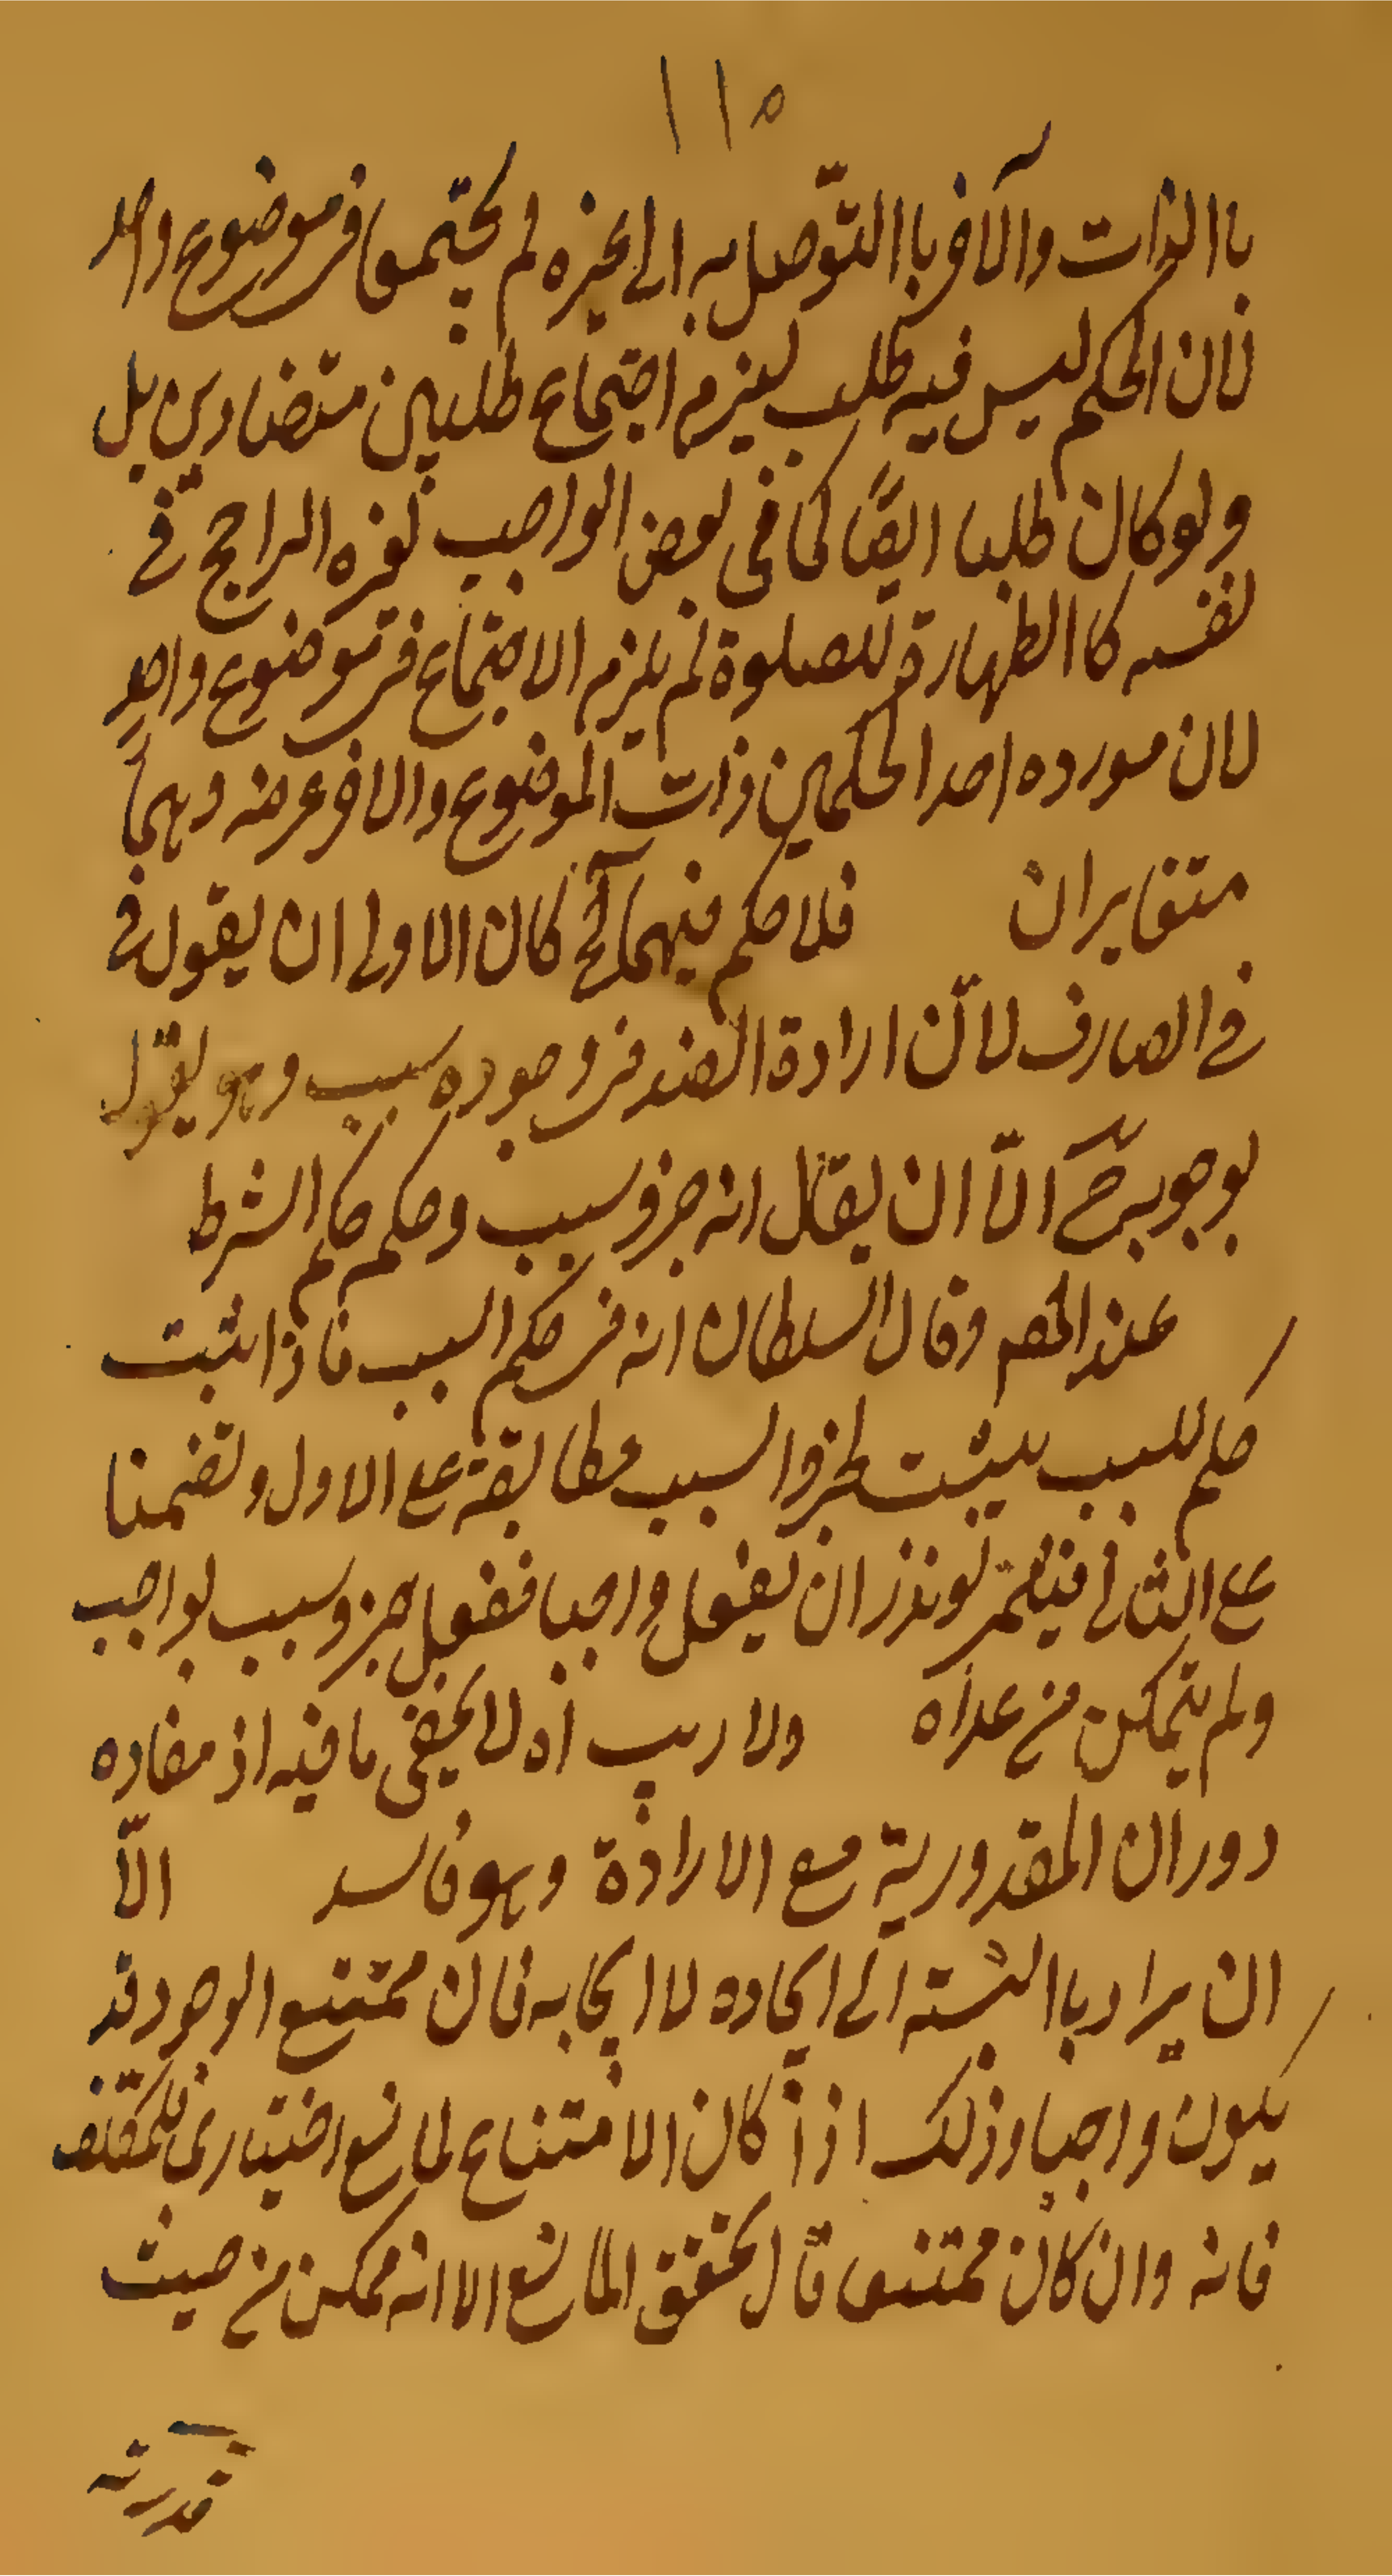 ١١٥
باالذات والآخر باالتوّصل به الى غيره لم يجتمعا فى موضوع واحد
لان الحكم ليس فيه طلب ليلزم اجتماع طلبين متضادين بل
ولو كان طلبا ايضًا كما فى بعض الواجب لغيره الراجح فى
نفسه كاالطهارة للصلوة لم يلزم الاجتماع فى موضوع واحد
لان مورده احد الحكمين ذات الموضوع والاخر عرضه وهما
متغايران فلا حكم فيهما آلخ كان الاولى ان يقول فى
فى الصارف لانّ ارادة الضد فى وجوده سبب وهو يقول
بوجوبه حٓ الّا ان يقال انه جزو سبب وحكمه حكم الشرط
عند الخصم وقال السلطان انه فى حكم السبب فاذا ثبت
حكم للسبب يثبت لجزوالسبب مطابقة على الاول وتضمنا
على الثانى فيثمر لو نذر ان يفعل واجبا ففعل جزو سبب لواجب
ولم يتمكن من عداه ولا ريب اه لا يخفى ما فيه اذ مفاده
دوران المقدورية مع الارادة وهو فاسد الّا
ان يراد باالنسبة الى ايجاده لا ايجابه فان ممتنع الوجود قد
يكون واجبا وذلك اذا كان الامتناع لمانع اختيارى للمكلف
فانه وان كان ممتنعا حال تحقق المانع الا انه ممكن من حيث
قدرته